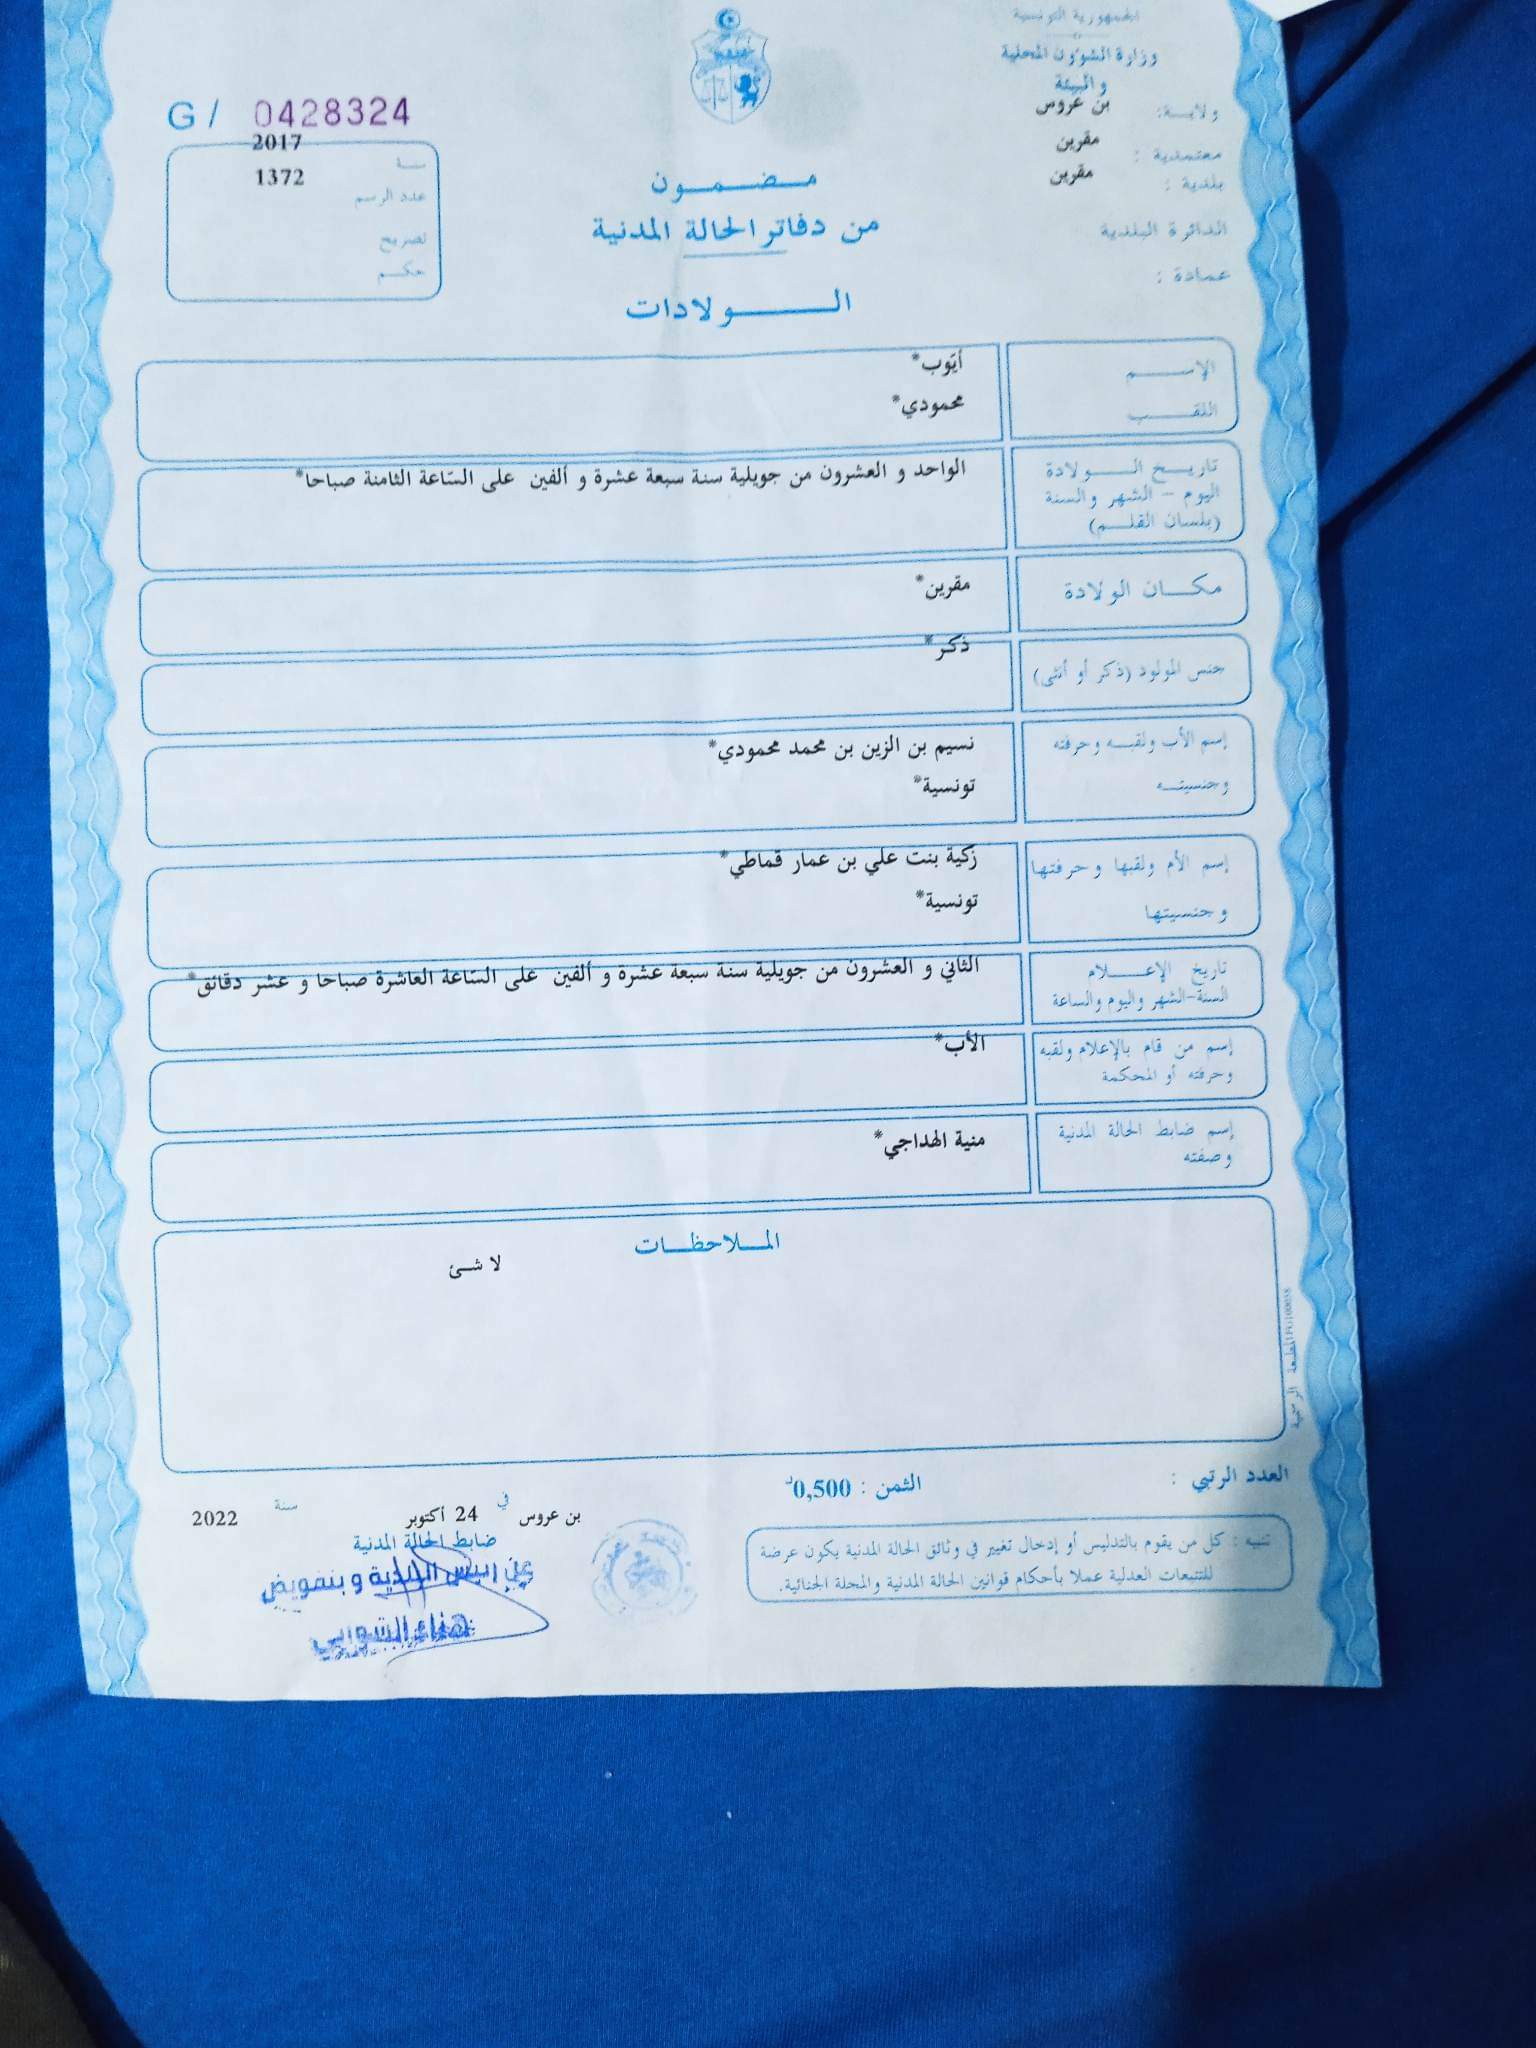 الجمهورية التونسية
وزارة الشؤون المحلية
والبيئة
ولايـة: بن عروس
معتمدية : مقرين
بلدية : مقرين
الدائرة البلدية
عمادة :
G / 0428324
سنة 2017
عدد الرسم 1372
لصريح
حكم
مضمون
من دفاتر الحالة المدنية
الولادات
الإسم أيّوب*
اللقب محمودي*
تاريخ الولادة الواحد و العشرون من جويلية سنة سبعة عشرة و ألفين على السّاعة الثامنة صباحا*
اليوم - الشهر والسنة
(بلسان القلم)
مكان الولادة مقرين*
جنس المولود (ذكر أو أنثى) ذكر*
إسم الأب ولقبه وحرفته نسيم بن الزين بن محمد محمودي*
وجنسيته تونسية*
إسم الأم ولقبها وحرفتها زكية بنت علي بن عمار قماطي*
وجنسيتها تونسية*
تاريخ الإعلام الثاني و العشرون من جويلية سنة سبعة عشرة و ألفين على السّاعة العاشرة صباحا و عشر دقائق*
السنة-الشهر واليوم والساعة
إسم من قام بالإعلام ولقبه الأب*
وحرفته أو المحكمة
إسم ضابط الحالة المدنية منية الهداجي*
وصفته
الملاحظات
لا شئ
المطبعة الرسمية
العدد الرتبي :
الثمن : 0,500د
تنبيه : كل من يقوم بالتدليس أو إدخال تغيير في وثائق الحالة المدنية يكون عرضة
للتتبعات العدلية عملا بأحكام قوانين الحالة المدنية والمجلة الجنائية.
بن عروس في 24 أكتوبر سنة 2022
ضابط الحالة المدنية
عن رئيس البلدية وبتفويض
هناء التواتي